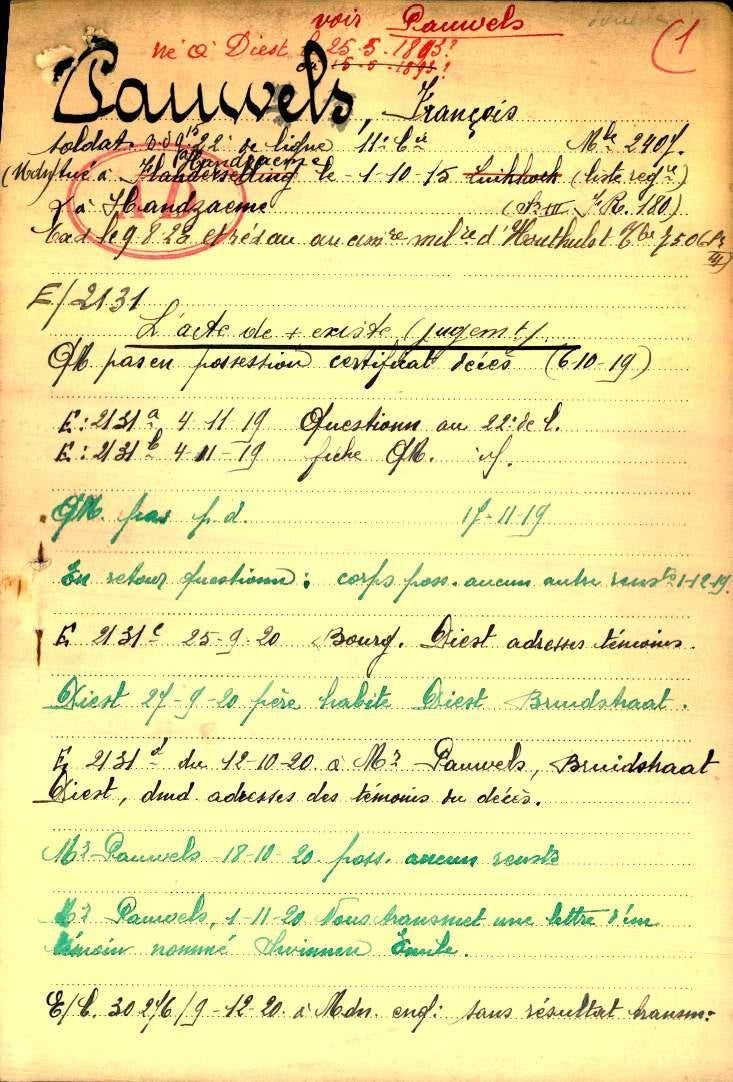 voir Pauwels
(1
né à Diest le 25-5-1893?
ou 15-5-1893!
Pauwels, François
soldat 22e de ligne 11e Cie Mle 2407.
(Mdn) tué à Handzaeme le 1-10-15 (liste regre)
+ à Handzaeme (Br III R. 180)
Cad le 9 8 23 au cimre milre d'Houthulst Tbe 750 (Br III)
E/2131
L'acte de + existe (jugemt)
QM pas en possession certificat décès (6-10-19)
E: 2131 a 4-11-19 Questionn au 22e de l.
E: 2131 b 4-11-19 fiche QM.
QM. pas p.d. 17-11-19
En retour questionn: corps poss. aucun autre rensts 1-12-19.
E 2131 c 25-9-20 Bourg. Diest adresses témoins.
Diest 27-9-20 père habite Diest Bruidstraat.
E 2131 d du 12-10-20 à Mr Pauwels, Bruidstraat
Diest, dmd adresses des témoins du décès.
Mr Pauwels 18-10-20 poss. aucun rensts
Mr Pauwels, 1-11-20 Nous transmet une lettre d'un
témoin nommé Swinnen Emile.
E/C. 30 276/9-12-20 à Mdn. enq: sans résultat transm: